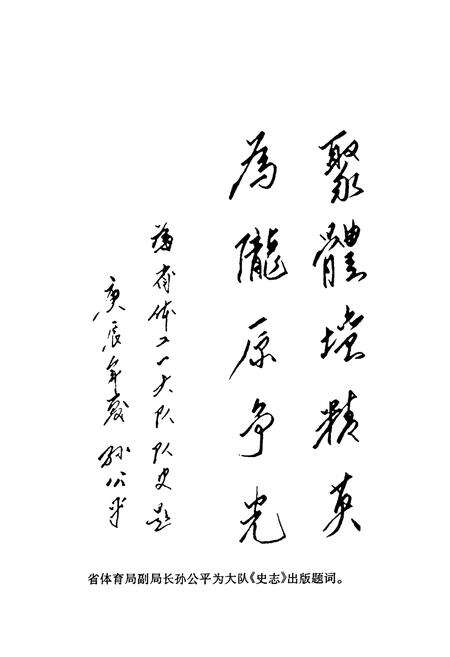 聚體壇精英
為隴原争光
為省体工一大队队史题
庚辰年岁 孙公平
省体育局副局长孙公平为大队《史志》出版题词。